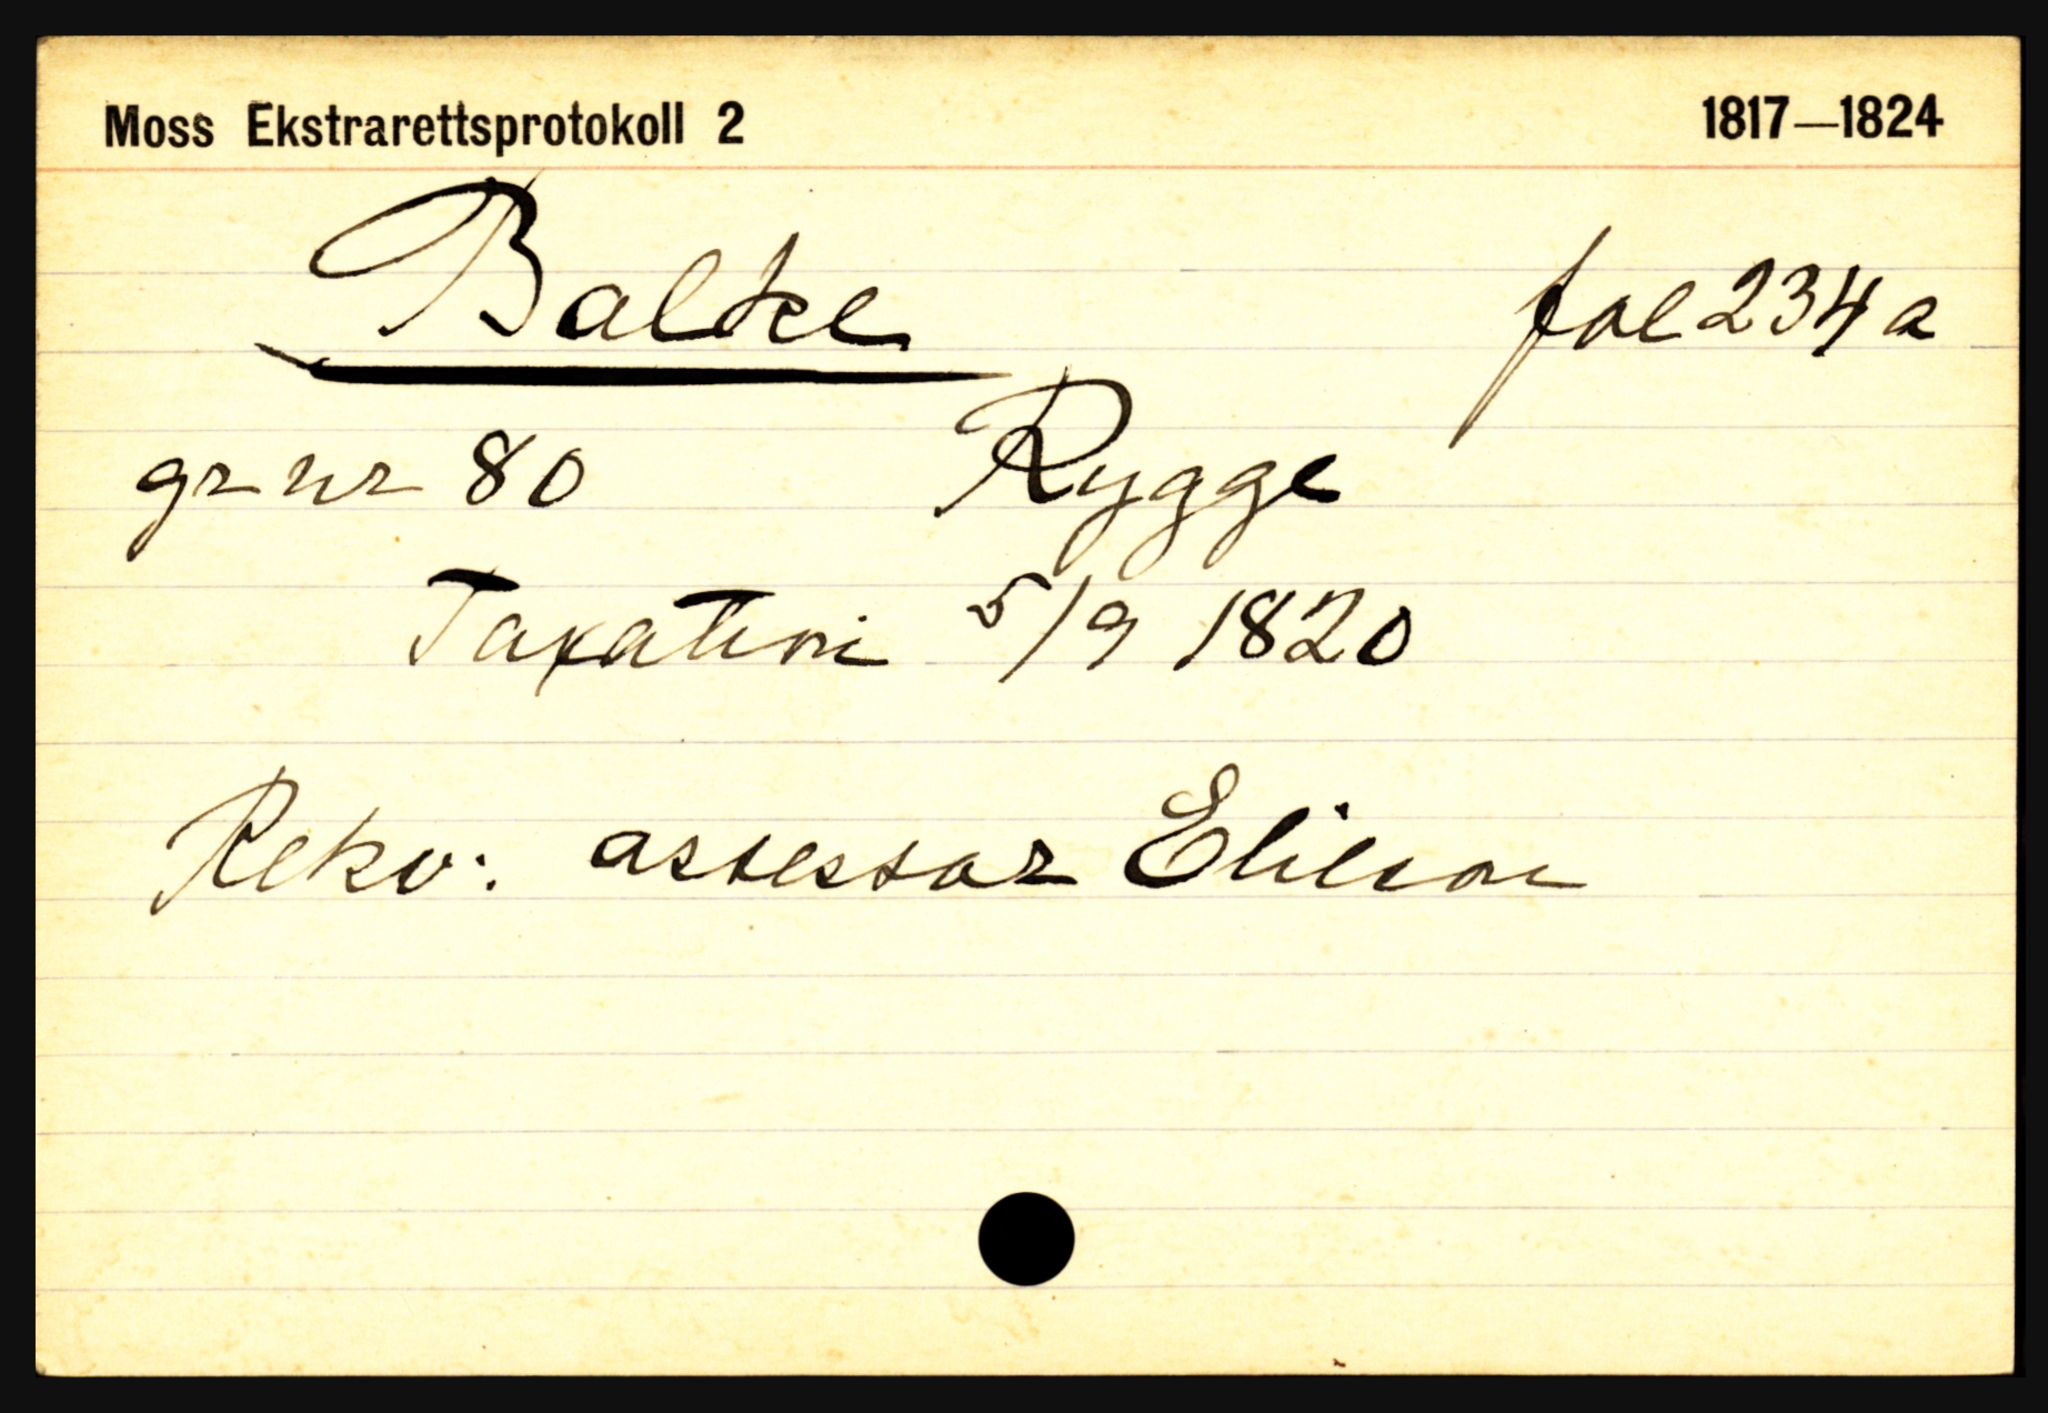 Moss Ekstrarettsprotokoll 2 1817—1824
Balke fol 234 a
gr nr 80 Rygge
Taxation 5/9 1820
Rekv: assessor Elieson